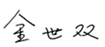 金世双